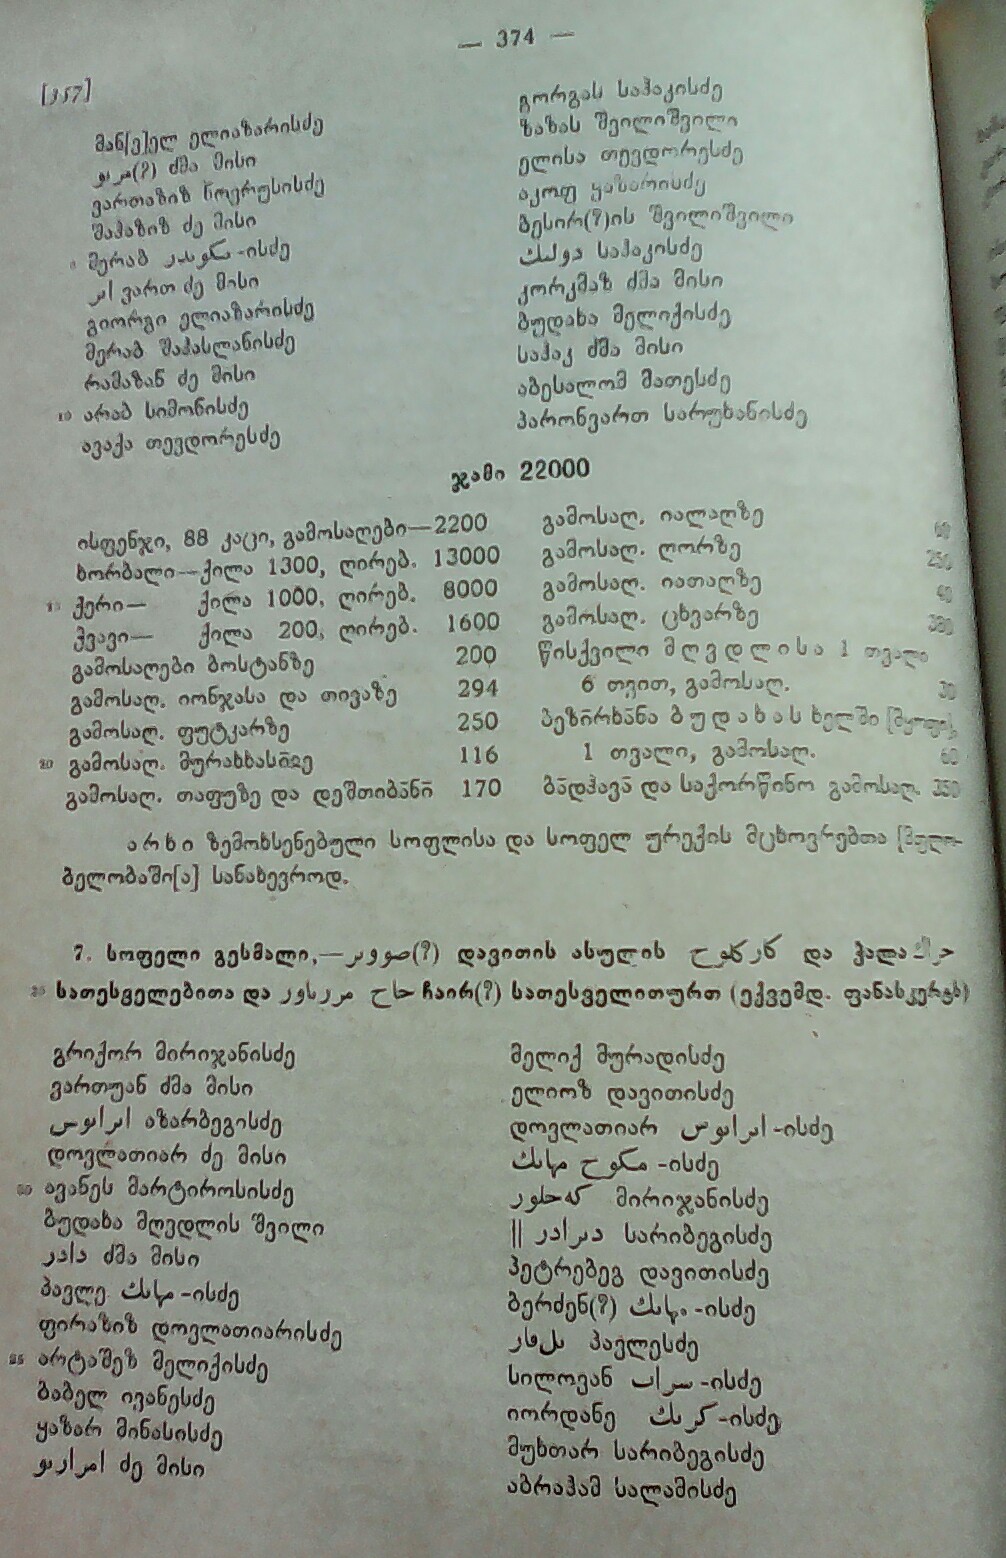 — 374 —
[357]
მან[ე]ელ ელიაზარისძე
(?) ძმა მისი
ვართაზიზ ნოვრუსისძე
შაჰაზიზ ძე მისი
მერაბ -ისძე
ვართ ძე მისი
გიორგი ელიაზარისძე
მერაბ შაჰასლანისძე
რამაზან ძე მისი
10 არაბ სიმონისძე
ავაქა თევდორესძე
გორგას საჰაკისძე
ზაზას შვილიშვილი
ელისა თევდორესძე
აკოფ ყაზარისძე
ბესირ(?)ის შვილიშვილი
دولتك საჰაკისძე
კორკმაზ ძმა მისი
ბუდახა მელიქისძე
საჰაკ ძმა მისი
აბესალომ მათესძე
პარონვართ სარუხანისძე
ჯამი 22000
ისფენჯი, 88 კაცი, გამოსაღები—2200
ხორბალი—ქილა 1300, ღირებ. 13000
15 ქერი— ქილა 1000, ღირებ. 8000
ჭვავი— ქილა 200, ღირებ. 1600
გამოსაღები ბოსტანზე 200
გამოსაღ. იონჯასა და თივაზე 294
გამოსაღ. ფუტკარზე 250
20 გამოსაღ. მურახხასიჲე 116
გამოსაღ. თაფუზე და დეშთიბანი 170
გამოსაღ. იალაღზე 60
გამოსაღ. ღორზე 250
გამოსაღ. იათაღზე 40
გამოსაღ. ცხვარზე 380
წისქვილი მღვდლისა 1 თვალი
6 თვით, გამოსაღ. 30
ბეზირხანა ბუდახას ხელში
1 თვალი, გამოსაღ. 60
ბადჰავა და საქორწინო გამოსაღ. 350
არხი ზემოხსენებული სოფლისა და სოფელ ურექის მცხოვრებთა [მფლო-
ბელობაში[ა] სანახევროდ.
7. სოფელი გესმალი,— (?) დავითის ასულის და ჭალა
25 სათესველებითა და ჩაირ(?) სათესველითურთ (ექვემდ. ფანასკერტს)
გრიქორ მირიჯანისძე
ვართუან ძმა მისი
აზარბეგისძე
დოვლათიარ ძე მისი
30 ავანეს მარტიროსისძე
ბუდახა მღვდლის შვილი
دادر ძმა მისი
პავლე -ისძე
ფირაზიზ დოვლათიარისძე
35 არტაშეზ მელიქისძე
ბაბელ ივანესძე
ყაზარ მინასისძე
ძე მისი
მელიქ მურადისძე
ელიოზ დავითისძე
დოვლათიარ -ისძე
-ისძე
მირიჯანისძე
|| სარიბეგისძე
პეტრებეგ დავითისძე
ბერძენ(?) -ისძე
პავლესძე
სილოვან -ისძე
იორდანე -ისძე
მუხთარ სარიბეგისძე
აბრაჰამ სალამისძე